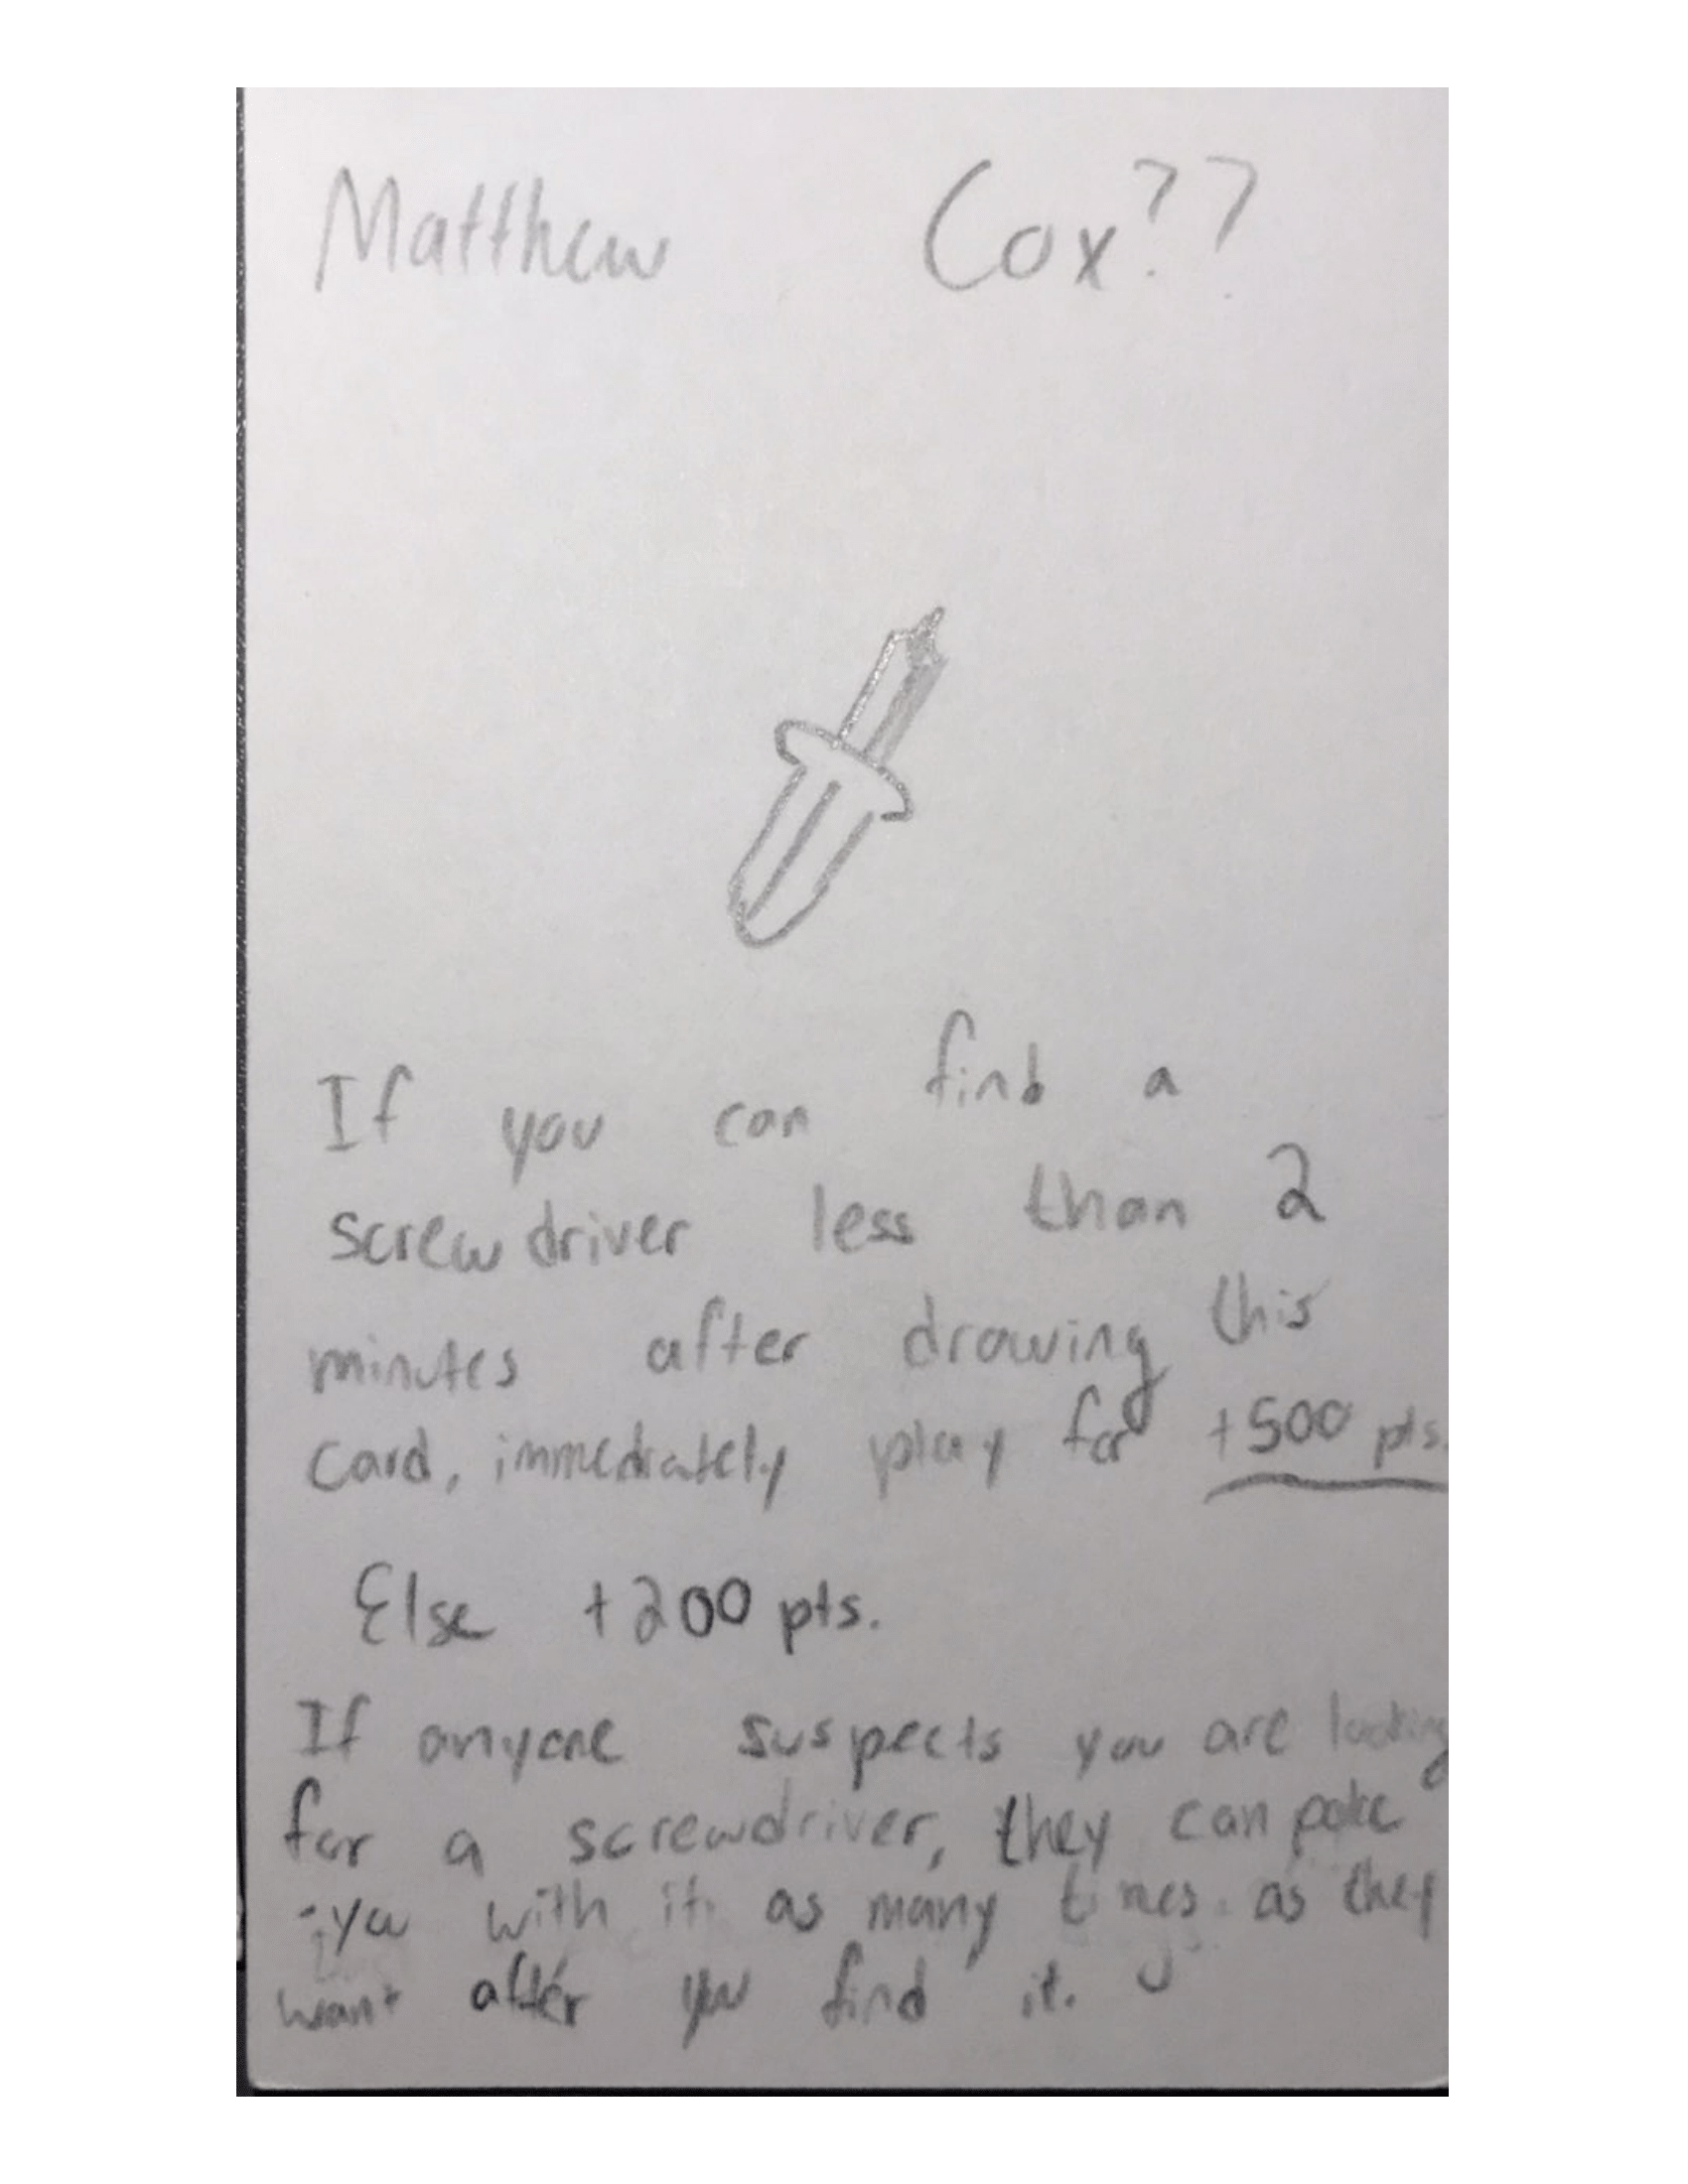 Matthew Cox??
If you can find a
screwdriver less than 2
minutes after drawing this
card, immediately play for +500 pts.
Else +200 pts.
If anyone suspects you are looking
for a screwdriver, they can poke
you with it as many times as they
want after you find it.